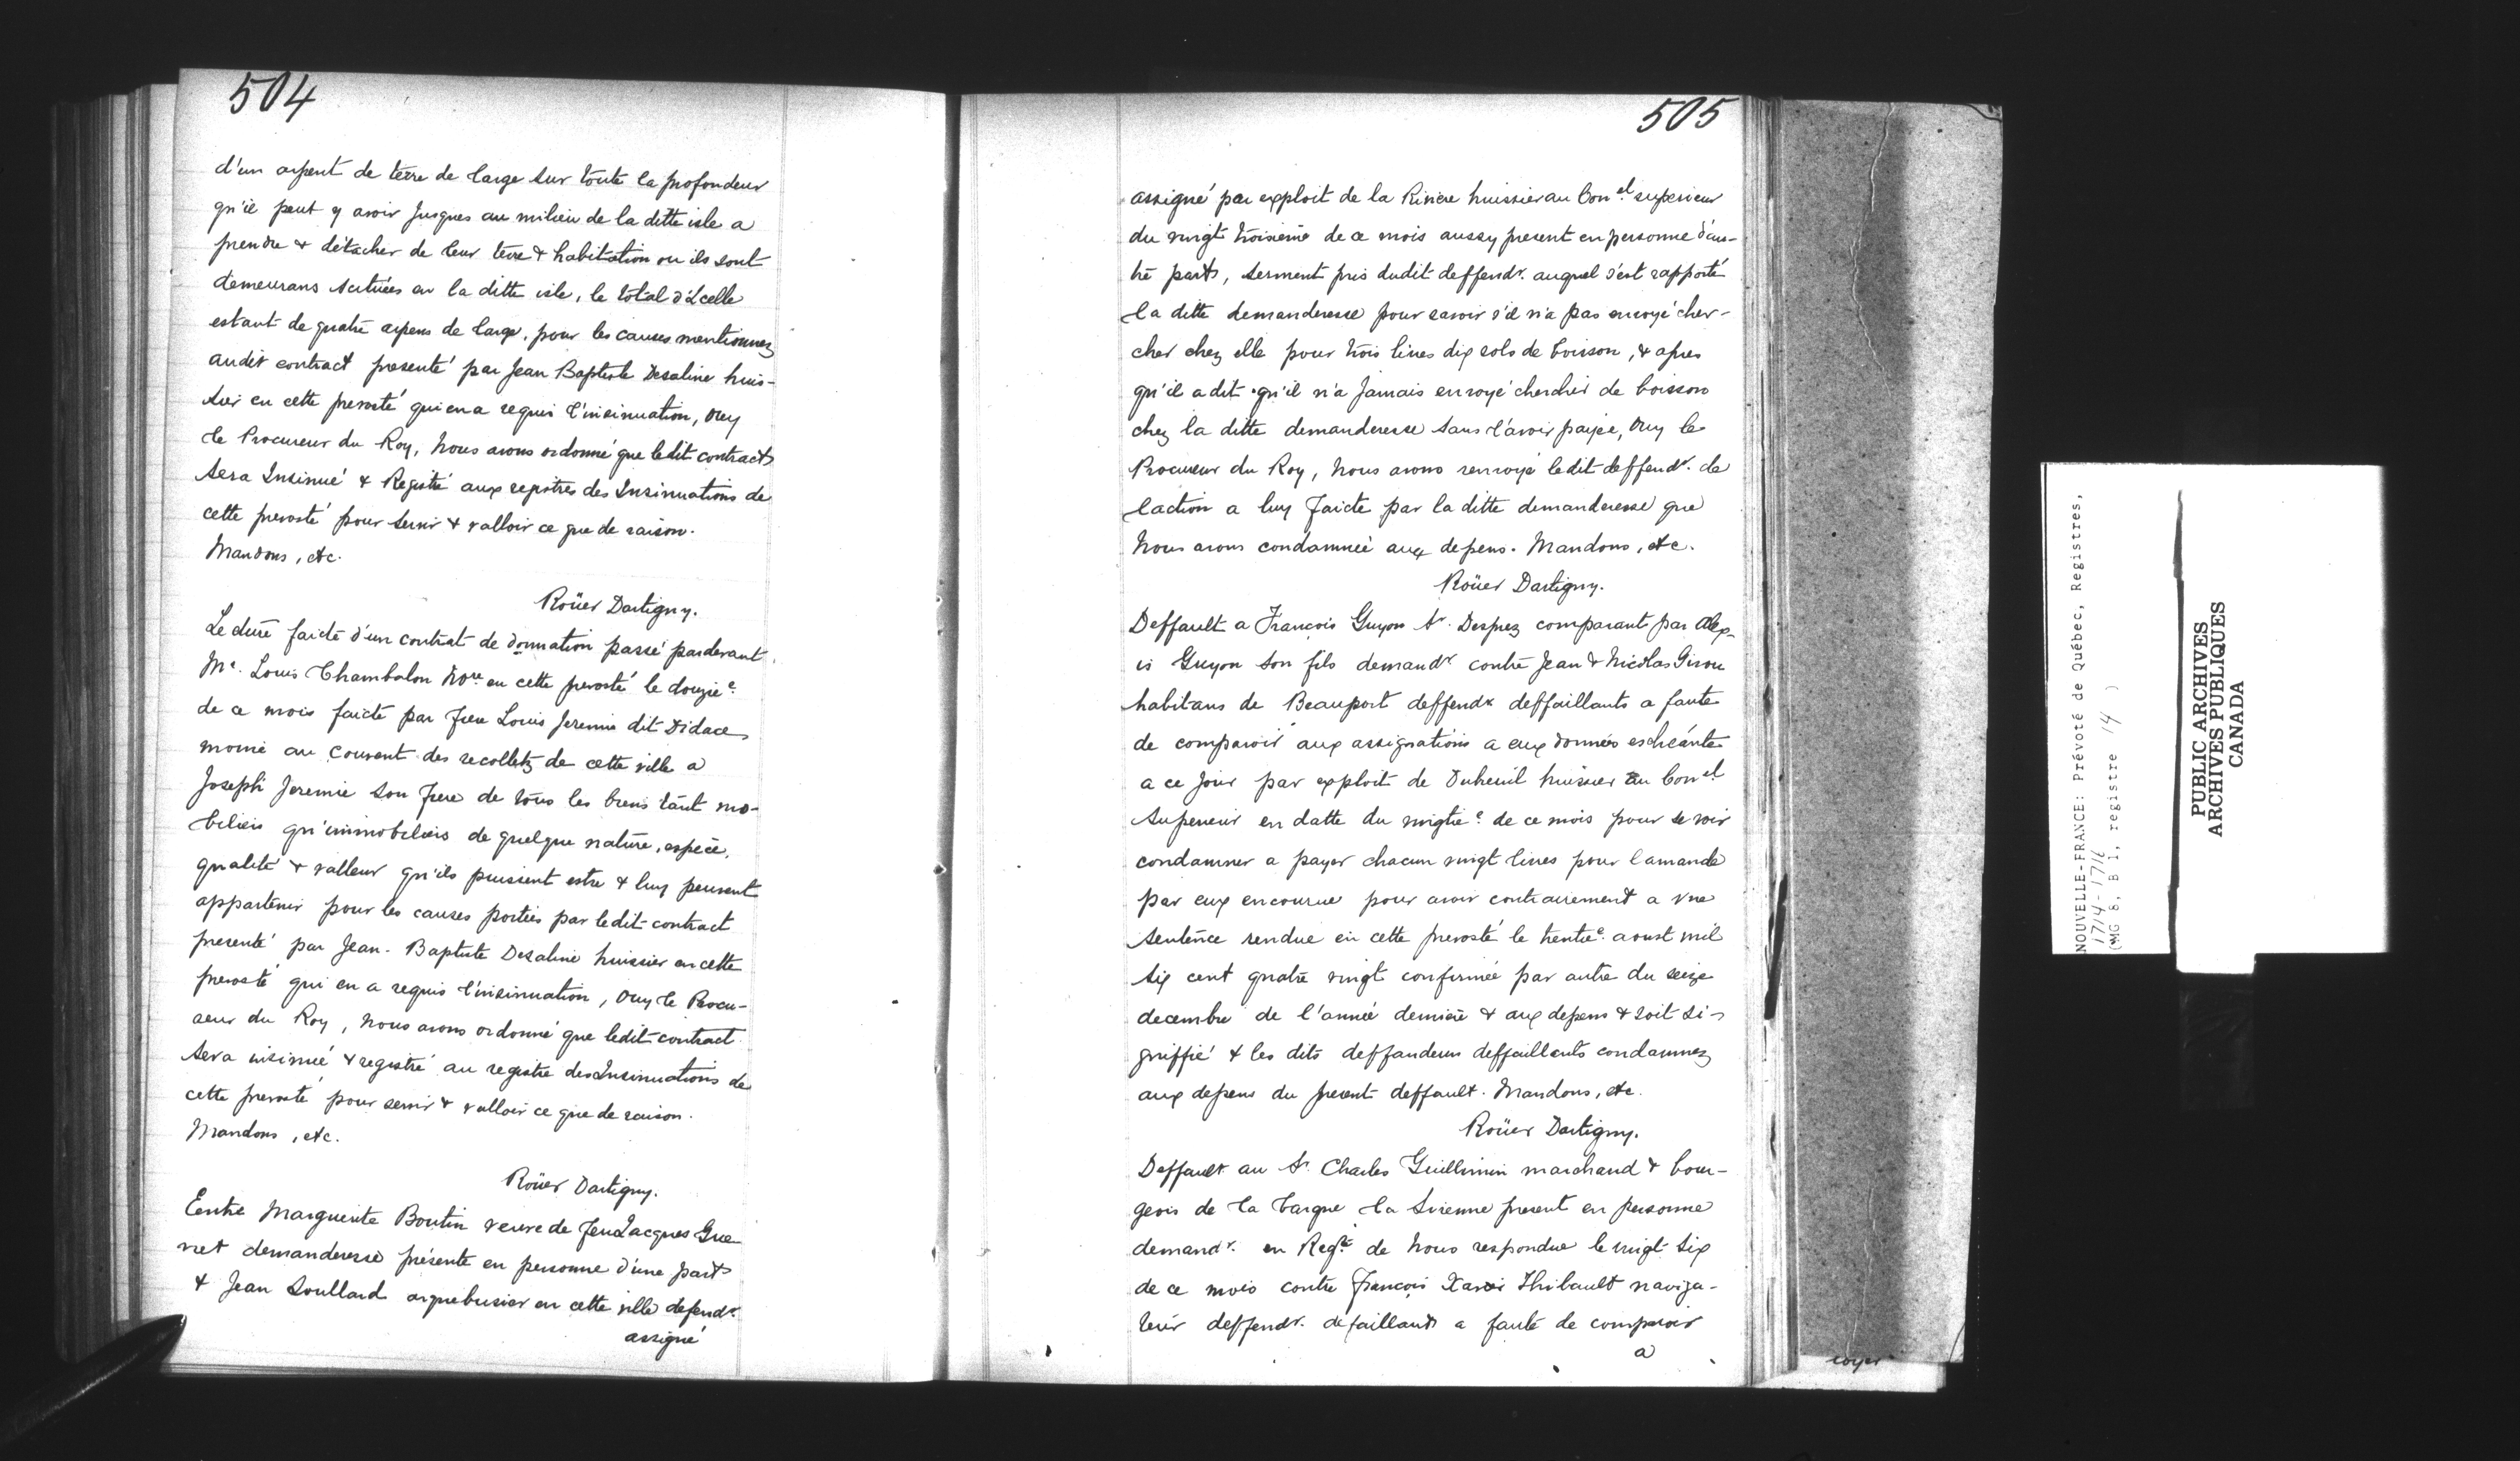 504
d'un arpent de terre de large sur toute la profondeur
qu'il peut y avoir jusques au milieu de la ditte isle a
prendre & détacher de leur terre & habitation ou ils sont
demeurans scituées en la ditte isle, le total d'Icelle
estant de quatre arpens de large, pour les causes mentionnez
audit contract presenté par Jean Baptiste Desaline huis-
sier en cette prevosté qui en a requis l'insinuation, Ouy
le Procureur du Roy, Nous avons ordonné que ledit contract
sera Insinué & Registré aux registres des Insinuations de
cette prevosté pour servir & valloir ce que de raison.
Mandons, etc.
Roüer Dartigny.
Lecture faicte d'un contrat de donnation passé pardevant
Me. Louis Chambalon Nore en cette prevosté le douzie.
de ce mois faicte par frere Louis Jeremie dit Didace
moine au couvent des recolletz de cette ville a
Joseph Jeremie son frere de tous les biens tant mo-
biliers qu'immobiliers de quelque nature, espece,
qualité & valleur qu'ils puissent estre & luy peuvent
appartenir pour les causes portées par ledit contract
presenté par Jean-Baptiste Desaline huissier en cette
prevosté qui en a requis l'insinuation, Ouy le Procu-
reur du Roy, Nous avons ordonné que ledit contract
sera insinué & registré au registre des Insinuations de
cette prevosté pour servir & valloir ce que de raison.
Mandons, etc.
Roüer Dartigny.
Entre Marguerite Boutin veuve de feu Jacques Gue-
net demanderesse présente en personne d'une part
& Jean Soullard arquebusier en cette ville defendr.
assigné
505
assigné par exploit de la Riviere huissier au Conel. superieur
du vingt troisieme de ce mois aussy present en personne d'au-
tre part, serment pris dudit deffendr. auquel s'est rapporté
la ditte demanderesse pour savoir s'il n'a pas envoyé cher-
cher chez elle pour trois livres dix sols de boisson, & apres
qu'il a dit qu'il n'a jamais envoyé chercher de boisson
chez la ditte demanderesse sans l'avoir payée, Ouy le
Procureur du Roy, Nous avons renvoyé ledit deffendr. de
laction a luy faicte par la ditte demanderesse que
Nous avons condamnée aux depens. Mandons, etc.
Roüer Dartigny.
Deffault a Francois Guyon Sr. Desprez comparant par Alex-
is Guyon son fils demandr. contre Jean & Nicolas Girou
habitans de Beauport deffendx deffaillants a faute
de comparoir aux assignations a eux données escheante
a ce jour par exploit de Duheuil huissier au Conel
Superieur en datte du vingtie. de ce mois pour se voir
condamner a payer chacun vingt livres pour lamande
par eux encourue pour avoir contrairement a une
sentence rendue en cette prevosté le trentie. aoust mil
six cent quatre vingt confirmée par autre du seize
decembre de l'année derniere & aux depens & soit si-
gniffié & les dits deffandeurs deffaillants condamnez
aux depens du present deffault. Mandons, etc.
Roüer Dartigny.
Deffault au Sr. Charles Guillimin marchand & bour-
geois de la barque la Sirenne present en personne
demandr. en Reqte. de Nous respondue le vingt six
de ce mois contre François Xavier Thibault naviga-
teur deffendr. defaillant a faute de comparoir
a
NOUVELLE-FRANCE: Prévoté de Québec, Registres,
1714-1716
(MG 8, B 1, registre 14 )
PUBLIC ARCHIVES
ARCHIVES PUBLIQUES
CANADA